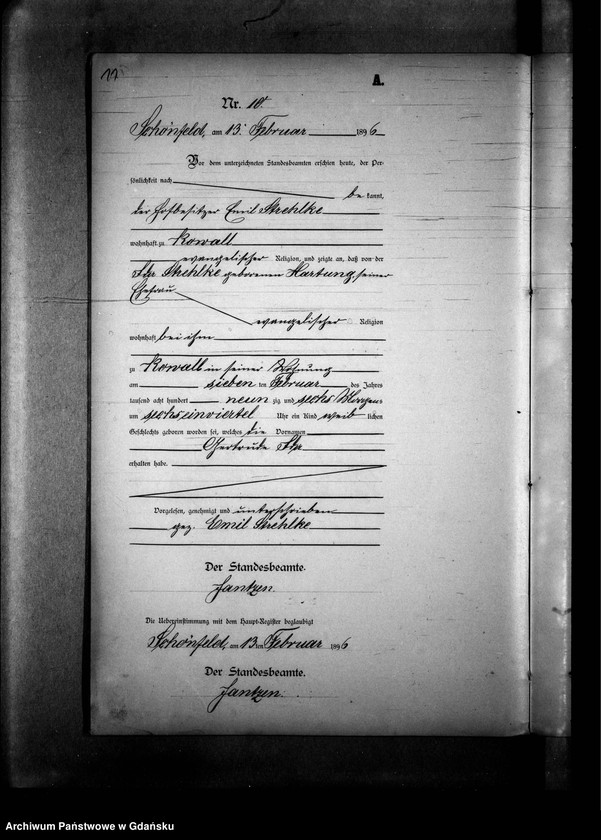 11
A.
Nr. 10.
Schönfeld, am 13. Februar 1896
Vor dem unterzeichneten Standesbeamten erschien heute, der Per-
sönlichkeit nach
be kannt,
der Hofbesitzer Emil Strehlke
wohnhaft zu Kowall
evangelischer Religion, und zeigte an, daß von der
Ida Strehlke geborenen Hartung, seiner
Ehefrau
evangelischer Religion
wohnhaft bei ihm
zu Kowall in seiner Wohnung
am sieben ten Februar des Jahres
tausend acht hundert neun zig und sechs Morgens
um sechseinviertel Uhr ein Kind weib lichen
Geschlechts geboren worden sei, welches die Vornamen
Gertrude Ida
erhalten habe.
Vorgelesen, genehmigt und unterschrieben
gez. Emil Strehlke
Der Standesbeamte.
Jantzen.
Die Uebereinstimmung mit dem Haupt-Register beglaubigt
Schönfeld, am 13 ten Februar 1896
Der Standesbeamte.
Jantzen.
Archiwum Państwowe w Gdańsku